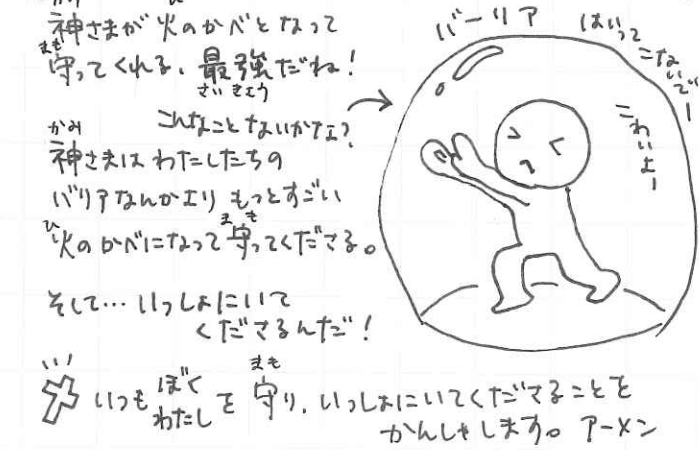 神さまが火のかべとなって
守ってくれる、最強だね!
こんなことないかなぁ?
神さまはわたしたちの
バリアなんかよりもっとすごい
火のかべになって守ってくださる。
そして…いっしょにいて
くださるんだ!
バーリア
はいって
こないでー
こわいよー
いつもぼく わたしを守り、いっしょにいてくださることを
かんしゃします。アーメン